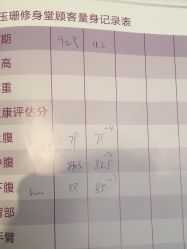 玉珊修身堂顾客量身记录表
期 9.25 11.2
高
重
康评估分
上腹 79 75-4
中腹 82.5-2
下腹 85-3
背部
手臂